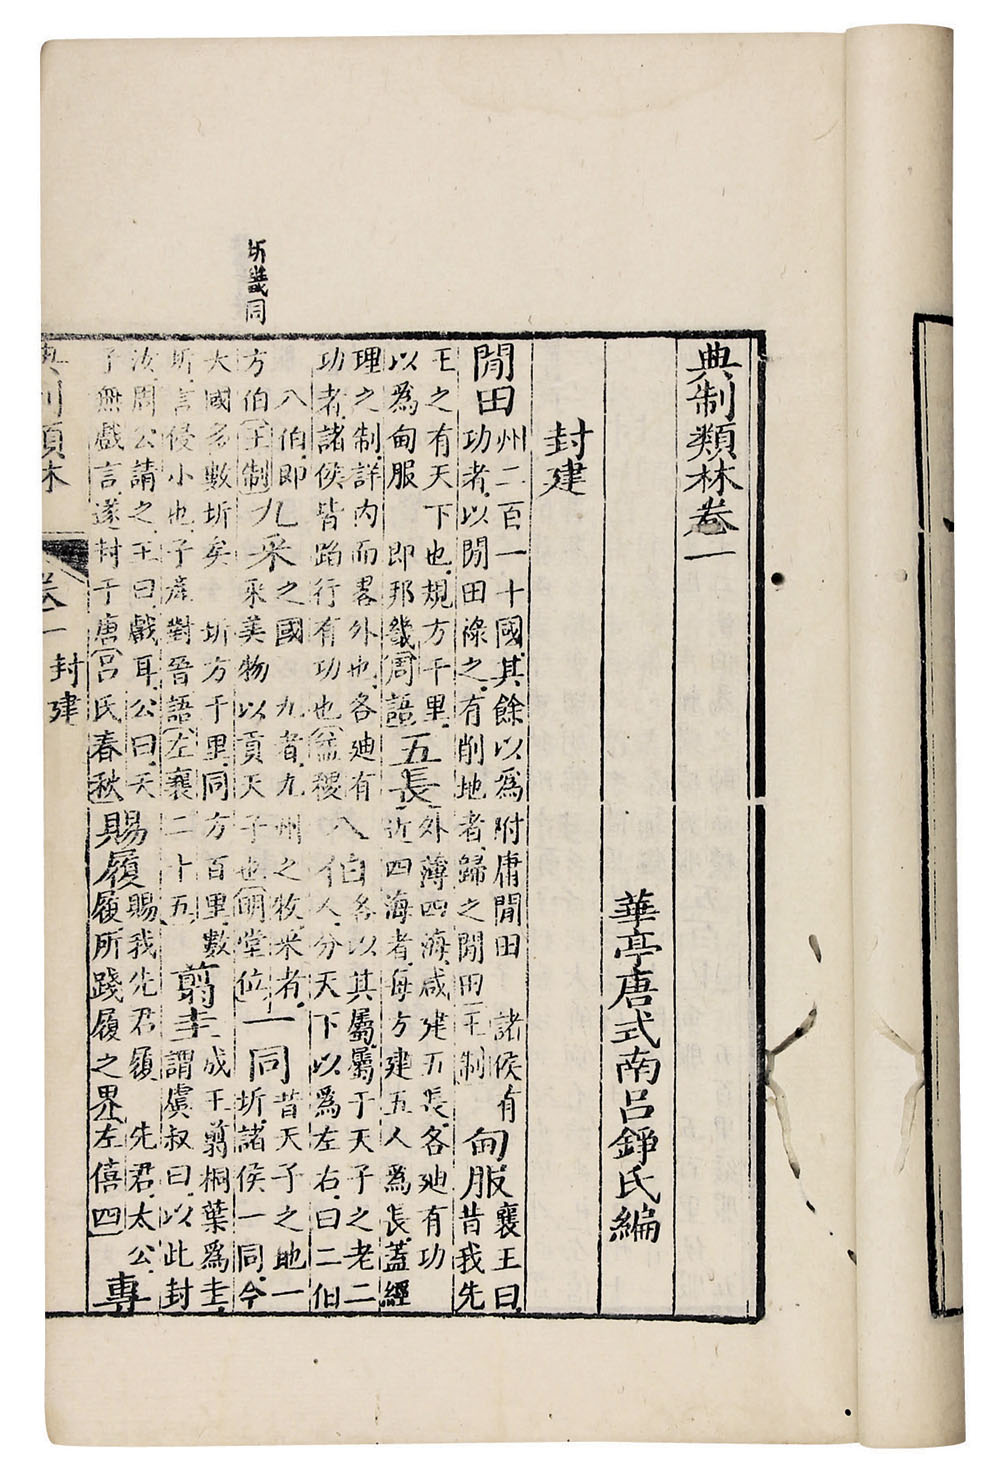 典制類林卷一
華亭唐式南呂錚氏編
封建
閒田
州二百一十國其餘以爲附庸閒田　諸侯有
功者以閒田祿之有削地者歸之閒田王制
甸服
襄王曰
昔我先
王之有天下也規方千里
以爲甸服　即邦畿周語
五長
外薄四海咸建五長各廸有功
近四海者每方建五人爲長蓋經
理之制詳內而畧外也各廸有
功者諸侯皆蹈行有功也益稷
八伯
各以其屬屬于天子之老二
人分天下以爲左右曰二伯
八伯即
方伯王制
九采
之國　九者九州之牧采者
采美物以貢天子也明堂位
一同
昔天子之地一
圻諸侯一同今
圻畿同
大國多數圻矣　圻方千里同方百里數
圻言侵小也子產對晉語左襄二十五
剪圭
成王剪桐葉爲圭
謂虞叔曰以此封
汝周公請之王曰戲耳公曰天
子無戲言遂封于唐呂氏春秋
賜履
賜我先君履　先君太公
履所踐履之界左僖四
專
典制類林　卷一　封建